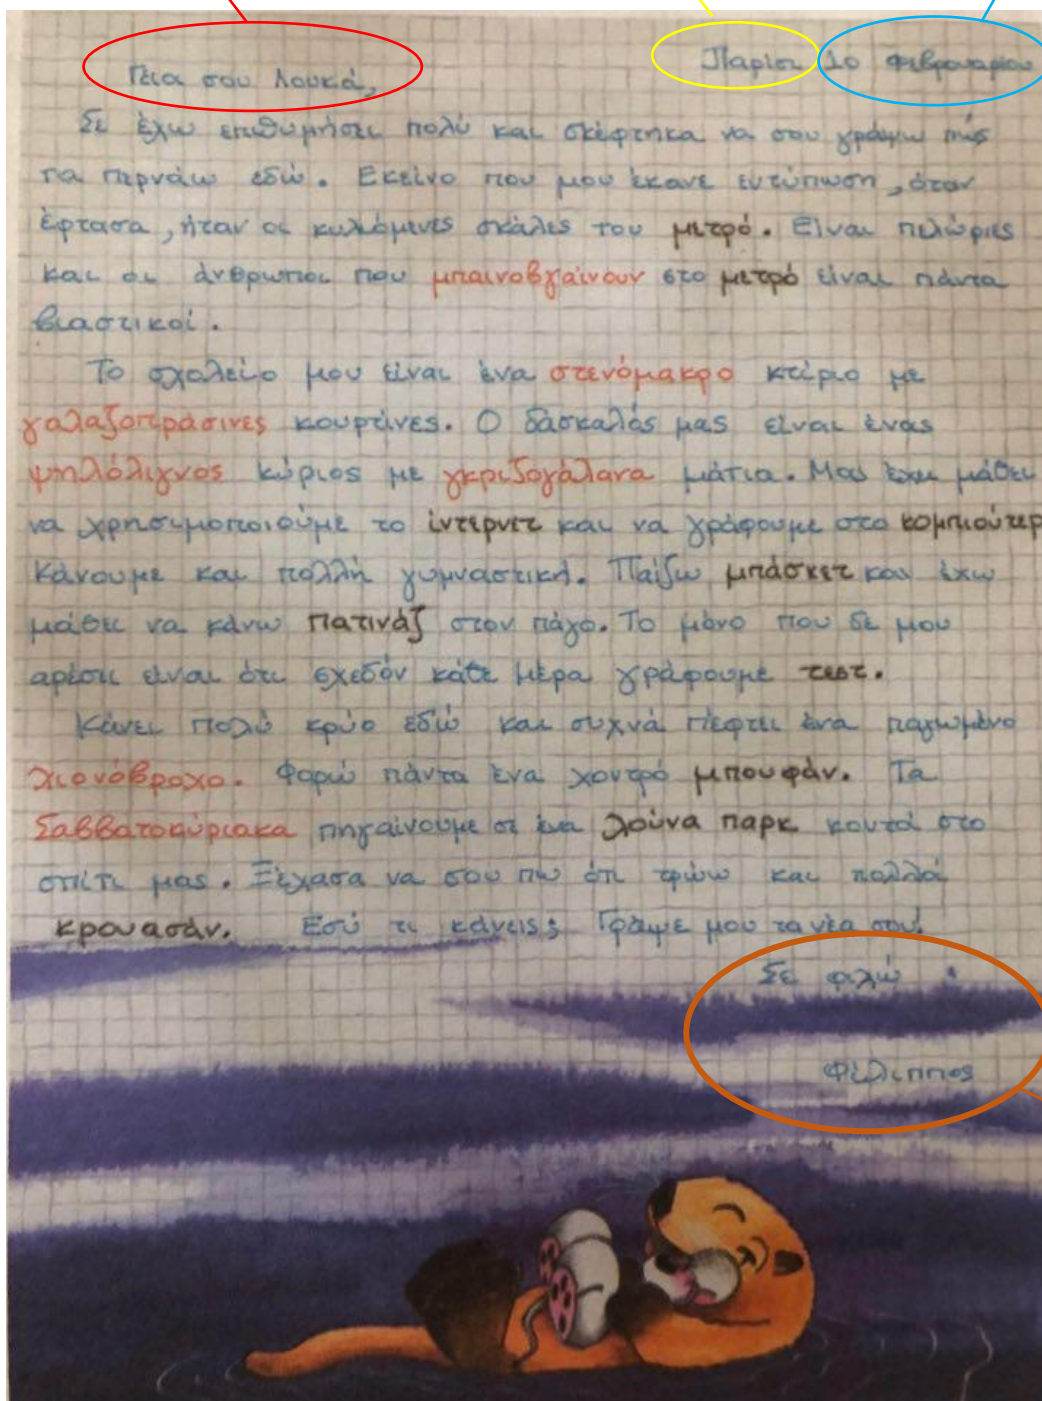 Παρίσι 10 Φεβρουαρίου
Γεια σου Λουκά,
Σε έχω επιθυμήσει πολύ και σκέφτηκα να σου γράψω πώς
τα περνάω εδώ. Εκείνο που μου έκανε εντύπωση, όταν
έφτασα, ήταν οι κυλιόμενες σκάλες του μετρό. Είναι πελώριες
και οι άνθρωποι που μπαινοβγαίνουν στο μετρό είναι πάντα
βιαστικοί.
Το σχολείο μου είναι ένα στενόμακρο κτίριο με
γαλαζοπράσινες κουρτίνες. Ο δάσκαλός μας είναι ένας
ψηλόλιγνος κύριος με γκριζογάλανα μάτια. Μας έχει μάθει
να χρησιμοποιούμε το ίντερνετ και να γράφουμε στο κομπιούτερ
Κάνουμε και πολλή γυμναστική. Παίζω μπάσκετ και έχω
μάθει να κάνω πατινάζ στον πάγο. Το μόνο που δε μου
αρέσει είναι ότι σχεδόν κάθε μέρα γράφουμε τεστ.
Κάνει πολύ κρύο εδώ και συχνά πέφτει ένα παγωμένο
χιονόβροχο. Φορώ πάντα ένα χοντρό μπουφάν. Τα
Σαββατοκύριακα πηγαίνουμε σε ένα λούνα παρκ κοντά στο
σπίτι μας. Ξέχασα να σου πω ότι τρώω και πολλά
κρουασάν. Εσύ τι κάνεις; Γράψε μου τα νέα σου!
Σε φιλώ
Φίλιππος